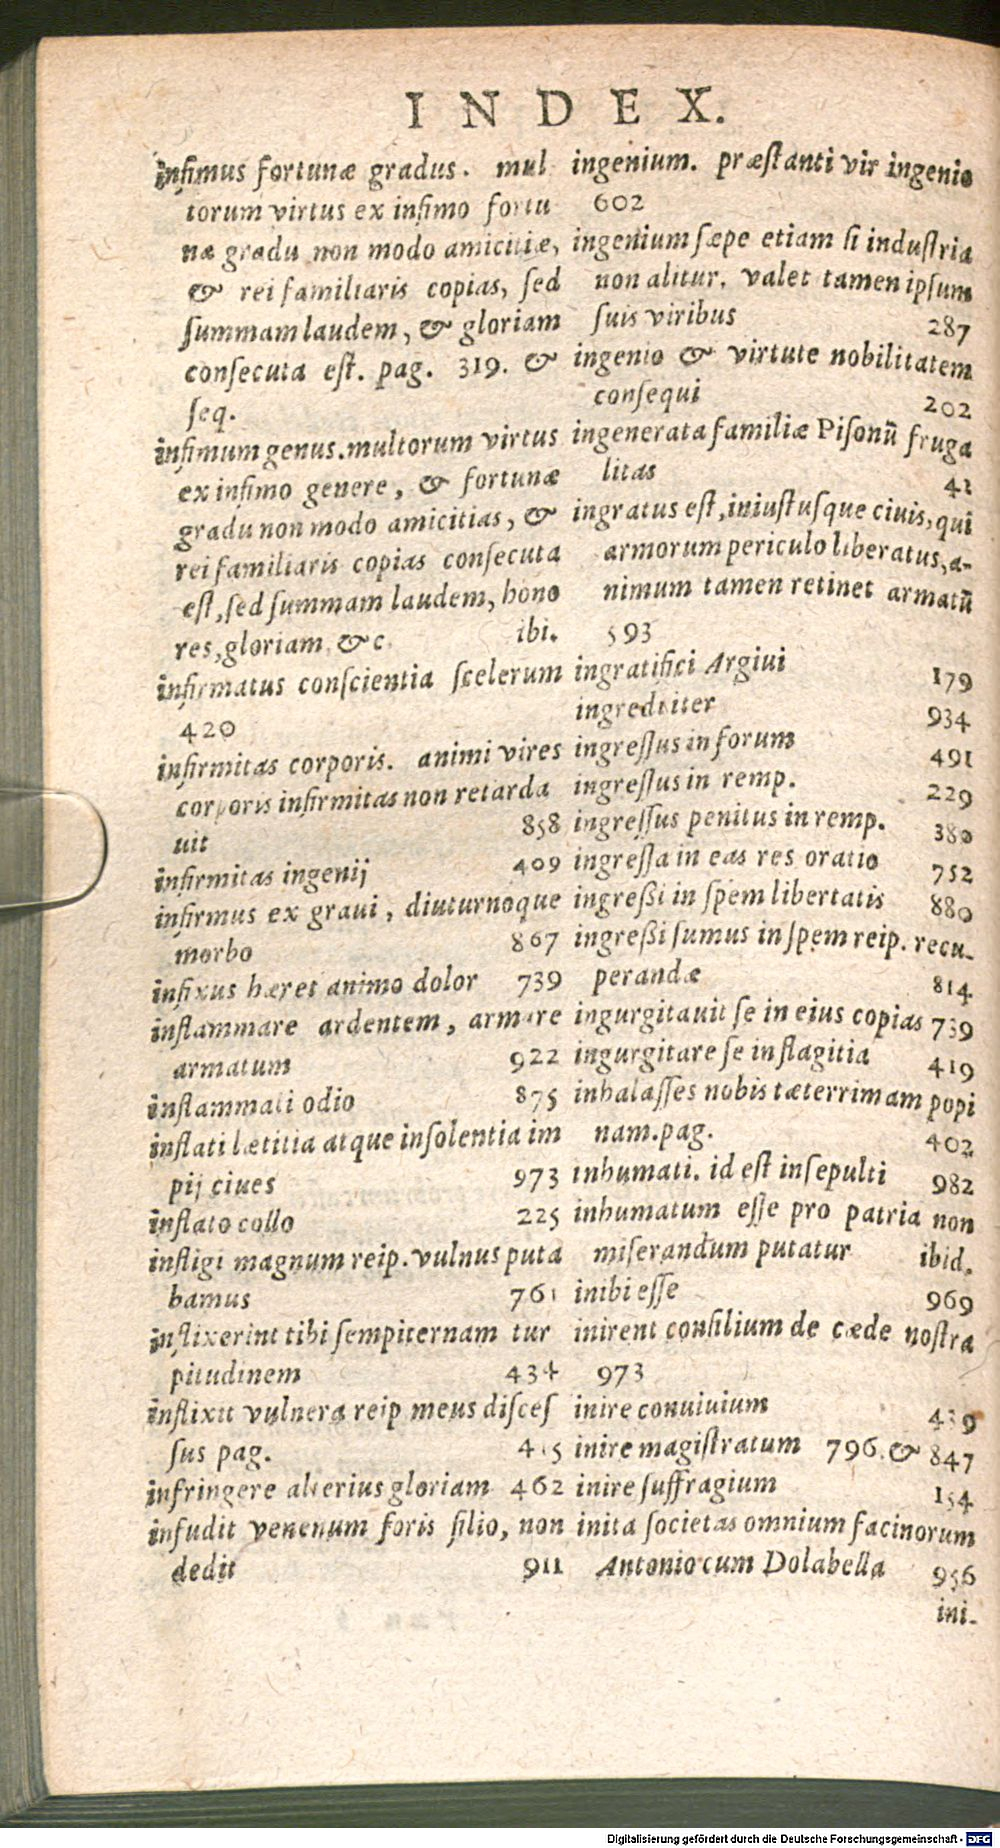 INDEX.
infimus fortunæ gradus. mul
torum virtus ex infimo fortu
næ gradu non modo amicitiæ,
& rei familiaris copias, ſed
ſummam laudem, & gloriam
conſecuta eſt. pag. 319. &
ſeq.
infimum genus. multorum virtus
ex infimo genere, & fortunæ
gradu non modo amicitias, &
rei familiaris copias conſecuta
eſt, ſed ſummam laudem, hono
res, gloriam &c. ibi.
infirmatus conſcientia ſcelerum
420
infirmitas corporis. animi vires
corporis infirmitas non retarda
uit 858
infirmitas ingenij 409
infirmus ex graui, diuturnoque
morbo 867
infixus hæret animo dolor 739
inflammare ardentem, armare
armatum 922
inflammati odio 875
inflati lætitia atque inſolentia im
pij ciues 973
inflato collo 225
infligi magnum reip. vulnus puta
bamus 761
inflixerint tibi ſempiternam tur
pitudinem 434
inflixit vulnera reip meus diſceſ
ſus pag. 415
infringere alterius gloriam 462
infudit venenum foris filio, non
dedit 911
ingenium. præſtanti vir ingenio
602
ingenium ſæpe etiam ſi induſtria
non alitur. valet tamen ipſum
ſuis viribus 287
ingenio & virtute nobilitatem
conſequi 202
ingenerata familiæ Piſonū fruga
litas 41
ingratus eſt, iniuſtuſque ciuis, qui
armorum periculo liberatus, a-
nimum tamen retinet armatū
593
ingratifici Argiui 179
ingrediiter 934
ingreſſus in forum 491
ingreſſus in remp. 229
ingreſſus penitus in remp. 380
ingreſſa in eas res oratio 752
ingreßi in ſpem libertatis 880
ingreßi ſumus in ſpem reip. recu-
perandæ 814
ingurgitauit ſe in eius copias 739
ingurgitare ſe in flagitia 419
inhalaſſes nobis tæterrimam popi
nam. pag. 402
inhumati. id eſt inſepulti 982
inhumatum eſſe pro patria non
miſerandum putatur ibid.
inibi eſſe 969
inirent conſilium de cæde noſtra
973
inire conuiuium 439
inire magiſtratum 796. & 847
inire ſuffragium 154
inita ſocietas omnium facinorum
Antonio cum Dolabella 956
ini-
Digitalisierung gefördert durch die Deutsche Forschungsgemeinschaft - DFG